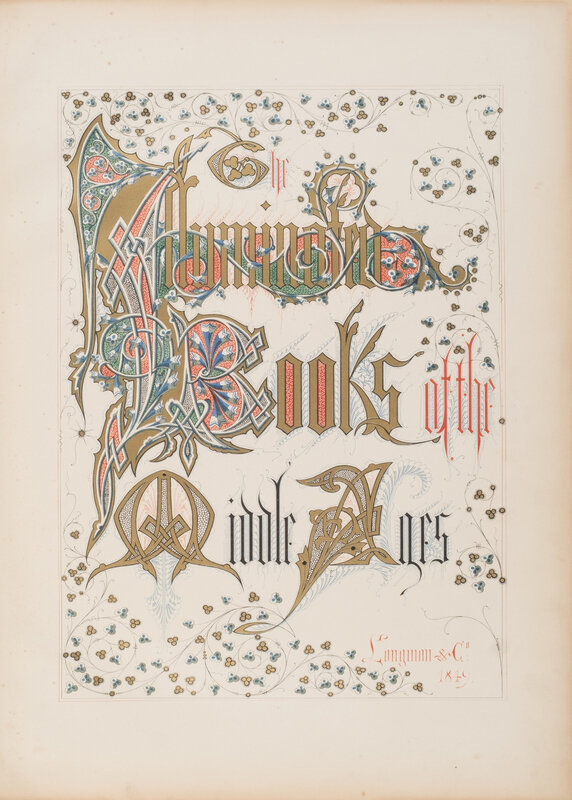 The
Illuminated
Books of the
Middle Ages
Longman & Co.
1849